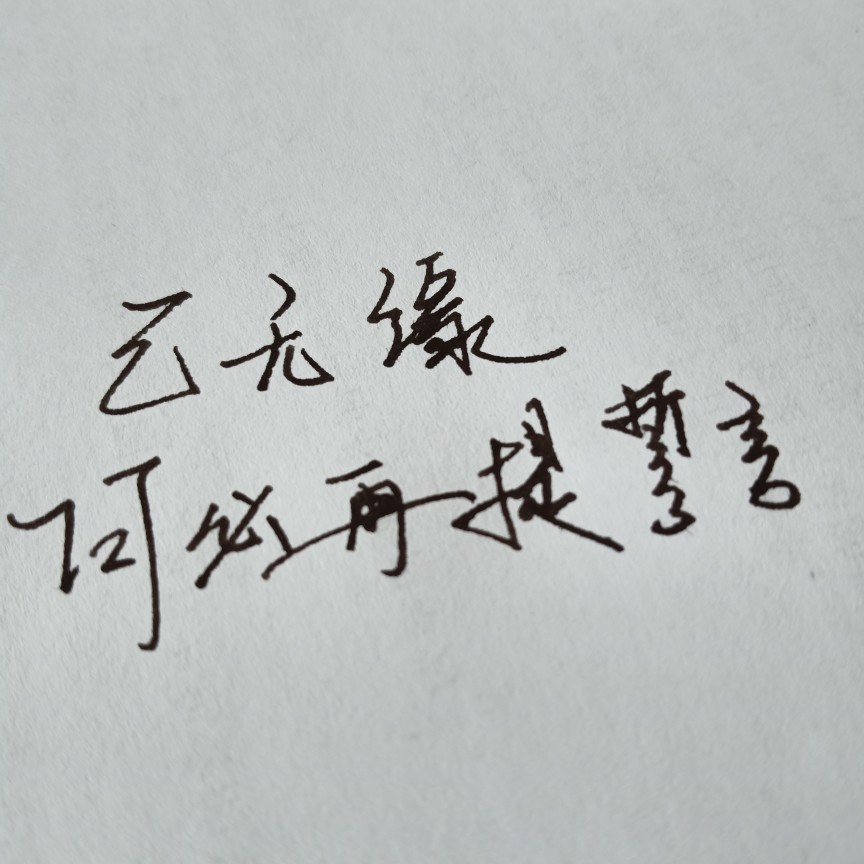 已无缘
何必再提誓言